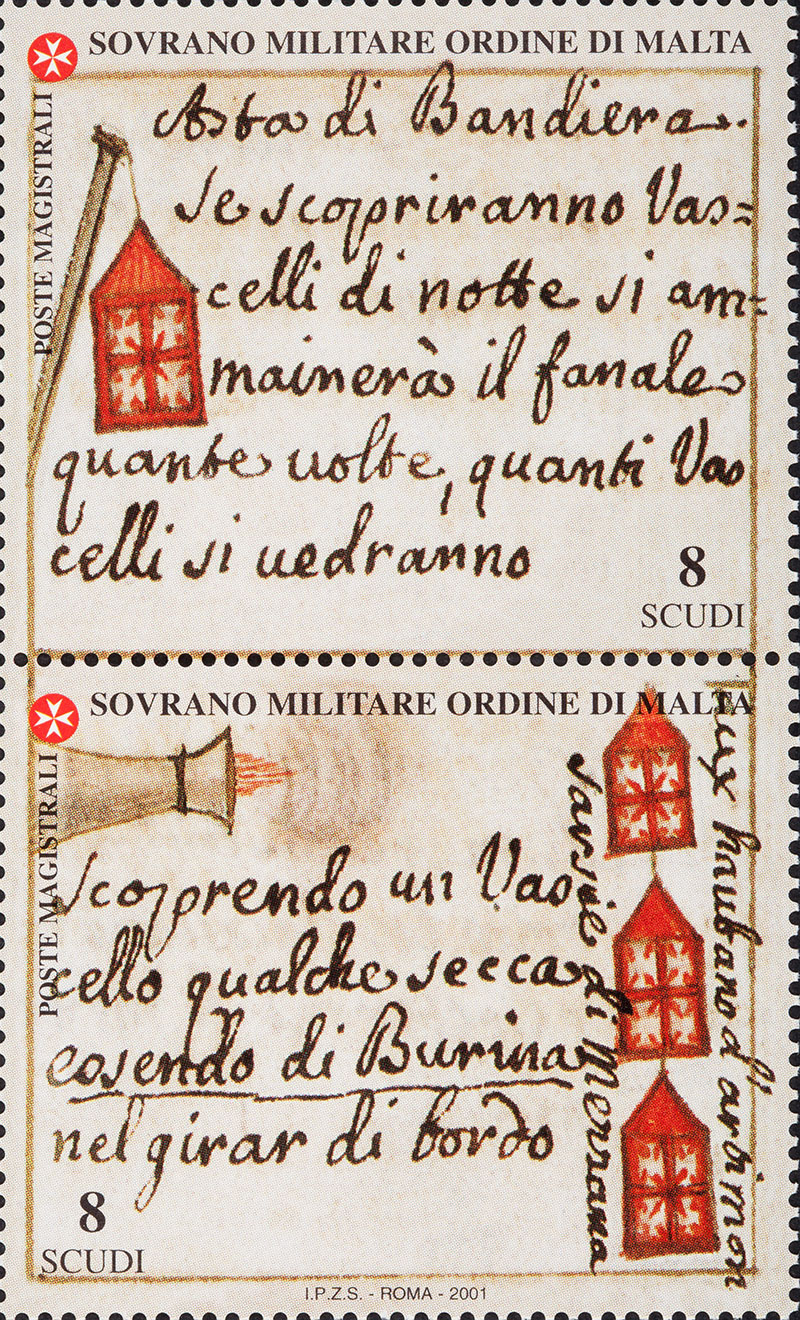 SOVRANO MILITARE ORDINE DI MALTA
POSTE MAGISTRALI
Asta di Bandiera.
se scopriranno Vas=
celli di notte si am=
mainerà il fanale
quante volte, quanti Vas
celli si vedranno
8
SCUDI
SOVRANO MILITARE ORDINE DI MALTA
POSTE MAGISTRALI
scoprendo un Vas
cello qualche secca
essendo di Burina
nel girar di bordo
sarsie di Mezzana
haubans d'artimon
8
SCUDI
I.P.Z.S. - ROMA - 2001